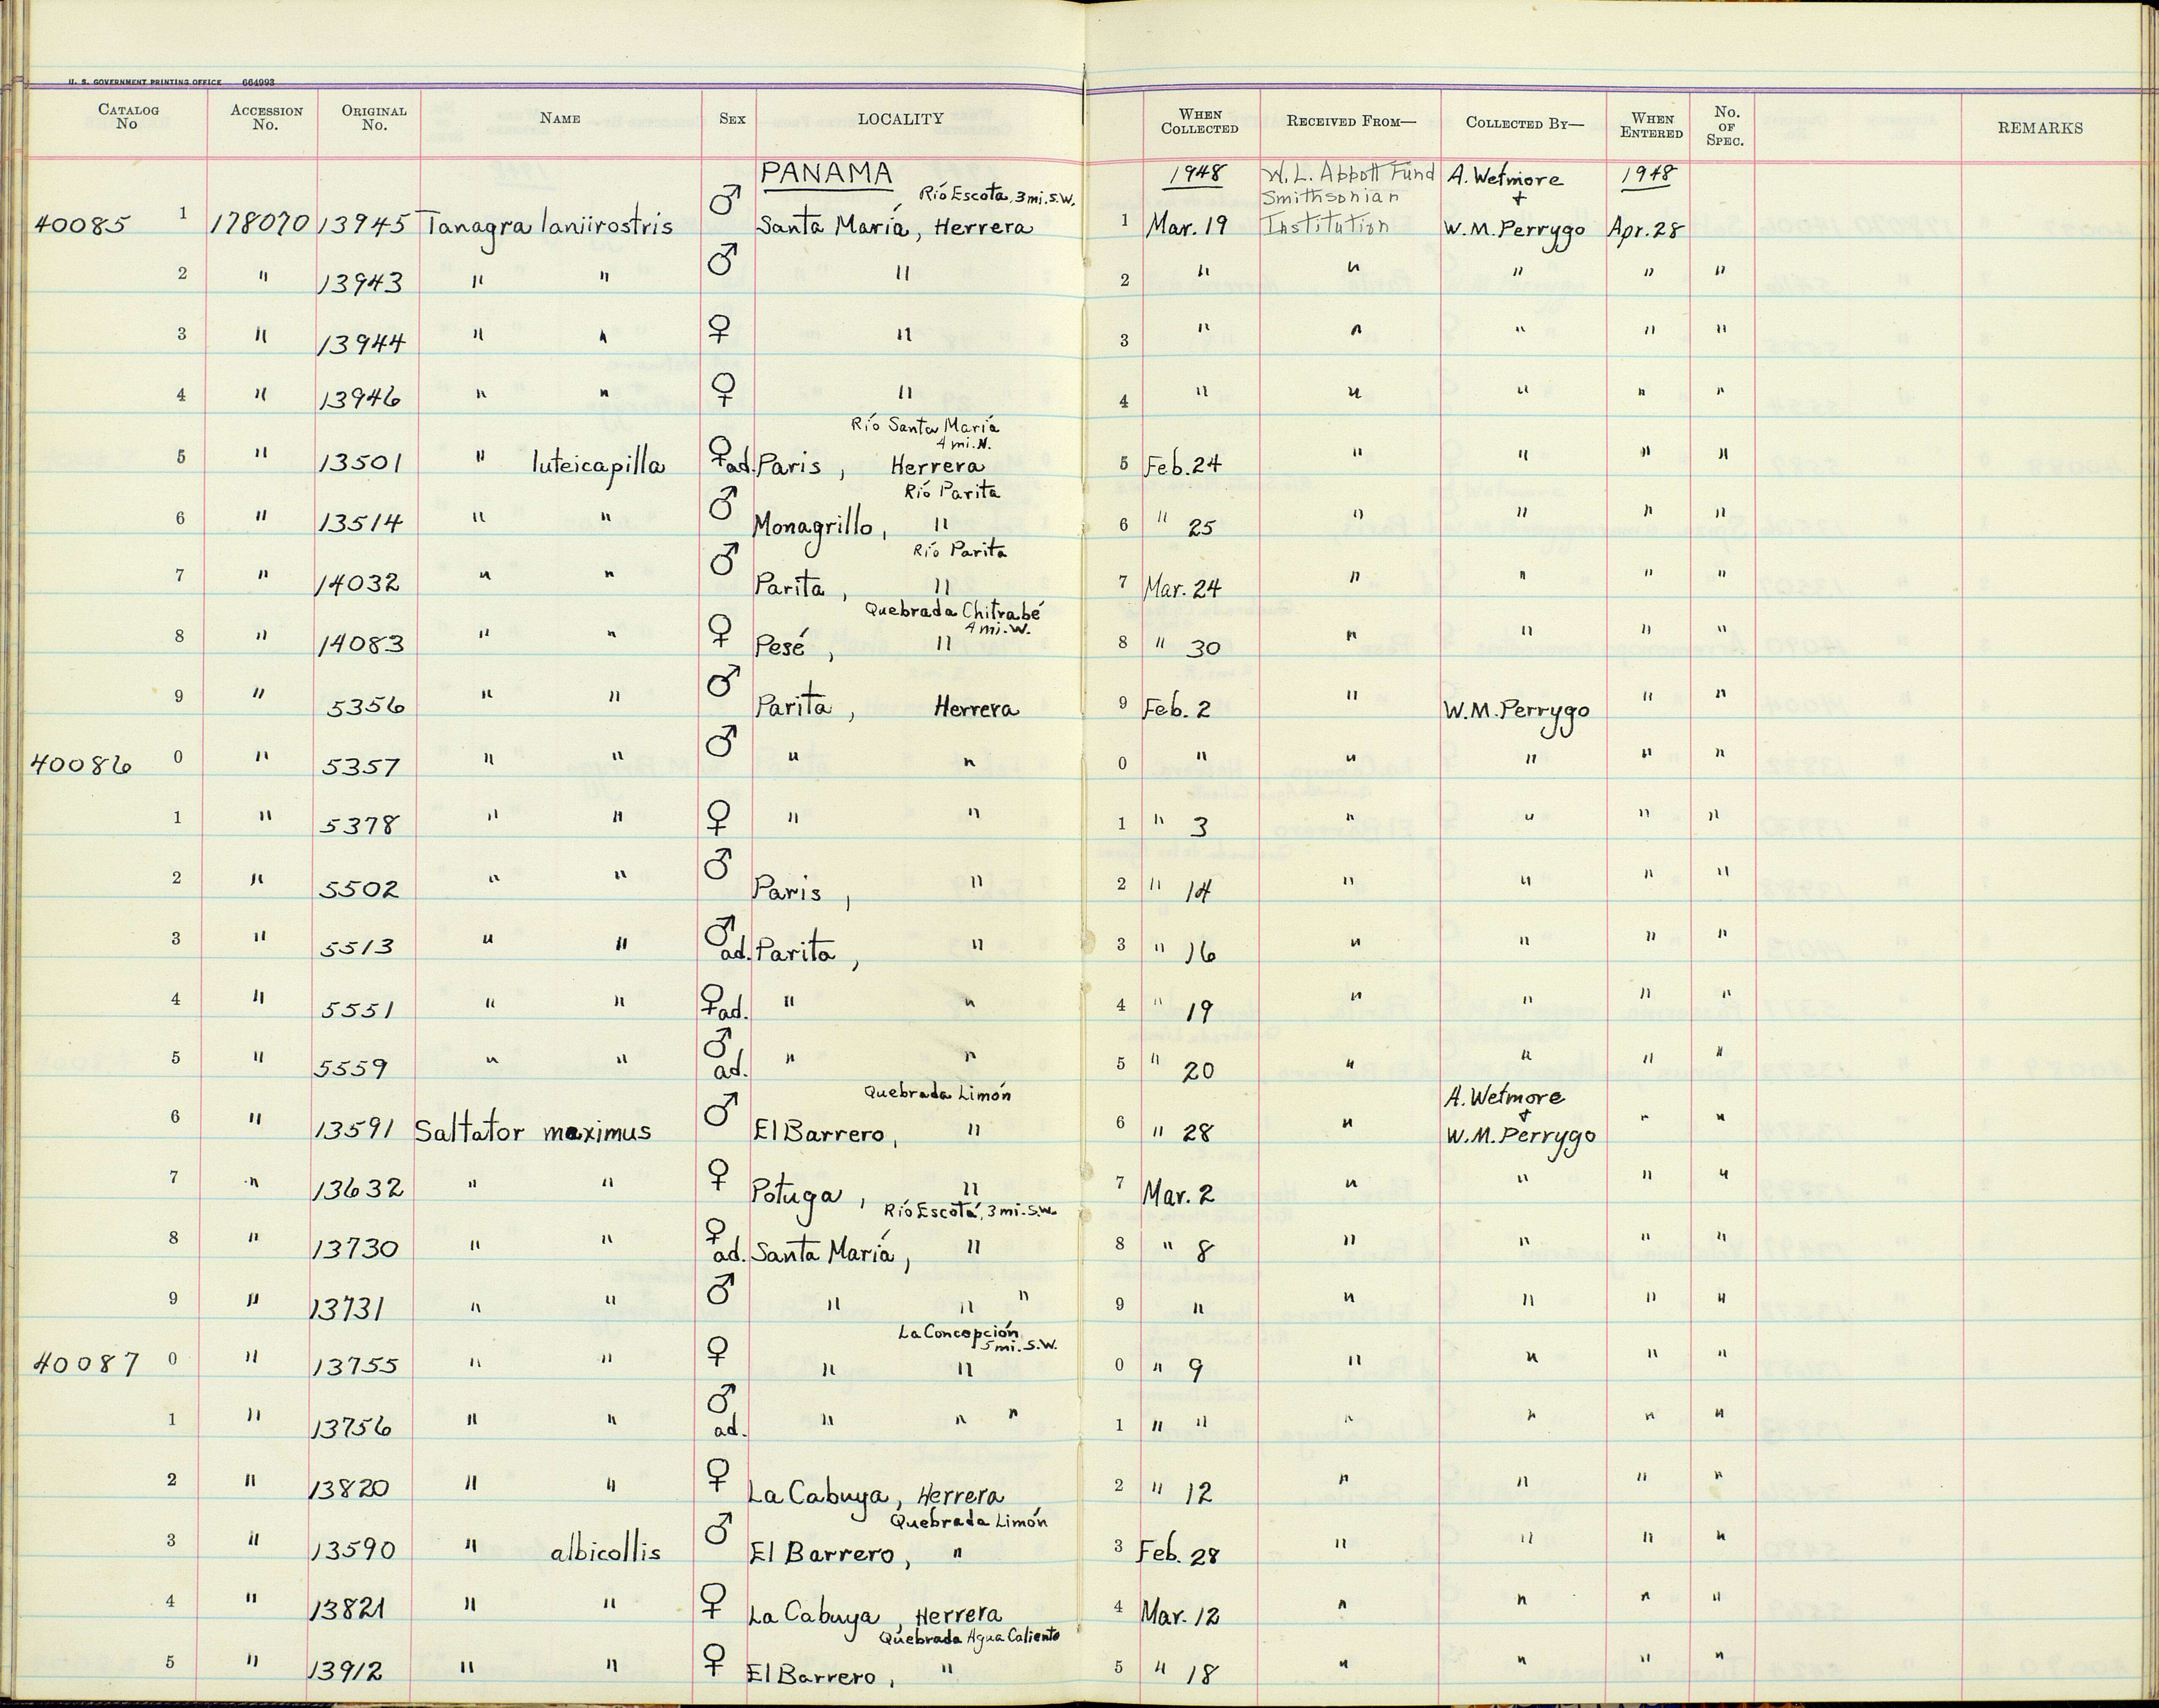 U. S. GOVERNMENT PRINTING OFFICE 664993
CATALOG No ACCESSION No. ORIGINAL No. NAME SEX LOCALITY WHEN COLLECTED RECEIVED FROM— COLLECTED BY— WHEN ENTERED No. OF SPEC. REMARKS
PANAMA 1948 W. L. Abbott Fund A. Wetmore 1948
Río Escota, 3 mi. S.W. Smithsonian +
40085 1 178070 13945 Tanagra laniirostris ♂ Santa María, Herrera 1 Mar. 19 Institution W.M. Perrygo Apr. 28
2 " 13943 " " ♂ " 2 " " " " "
3 " 13944 " " ♀ " 3 " " " " "
4 " 13946 " " ♀ " 4 " " " " "
Río Santa María
4 mi. N.
5 " 13501 " luteicapilla ♀ad. Paris, Herrera 5 Feb. 24 " " " "
Río Parita
6 " 13514 " " ♂ Monagrillo, " 6 " 25 " " " "
Río Parita
7 " 14032 " " ♂ Parita, " 7 Mar. 24 " " " "
Quebrada Chitrabé
4 mi. W.
8 " 14083 " " ♀ Pesé, " 8 " 30 " " " "
9 " 5356 " " ♂ Parita, Herrera 9 Feb. 2 " W.M. Perrygo " "
40086 0 " 5357 " " ♂ " " 0 " " " " "
1 " 5378 " " ♀ " " 1 " 3 " " " "
2 " 5502 " " ♂ Paris, " 2 " 14 " " " "
3 " 5513 " " ♂ ad. Parita, " 3 " 16 " " " "
4 " 5551 " " ♀ad. " " 4 " 19 " " " "
5 " 5559 " " ♂ ad. " " 5 " 20 " " " "
Quebrada Limón A. Wetmore
+
6 " 13591 Saltator maximus ♂ El Barrero, " 6 " 28 " W.M. Perrygo " "
7 " 13632 " " ♀ Potuga, " 7 Mar. 2 " " " "
Río Escotá, 3 mi. S.W.
8 " 13730 " " ♀ ad. Santa María, " 8 " 8 " " " "
9 " 13731 " " ♂ " " " 9 " " " " "
La Concepción
5 mi. S.W.
40087 0 " 13755 " " ♀ " " 0 " 9 " " " "
1 " 13756 " " ♂ ad. " " " 1 " " " " " "
2 " 13820 " " ♀ La Cabuya, Herrera 2 " 12 " " " "
Quebrada Limón
3 " 13590 " albicollis ♂ El Barrero, " 3 Feb. 28 " " " "
4 " 13821 " " ♀ La Cabuya, Herrera 4 Mar. 12 " " " "
Quebrada Agua Caliente
5 " 13912 " " ♀ El Barrero, " 5 " 18 " " " "